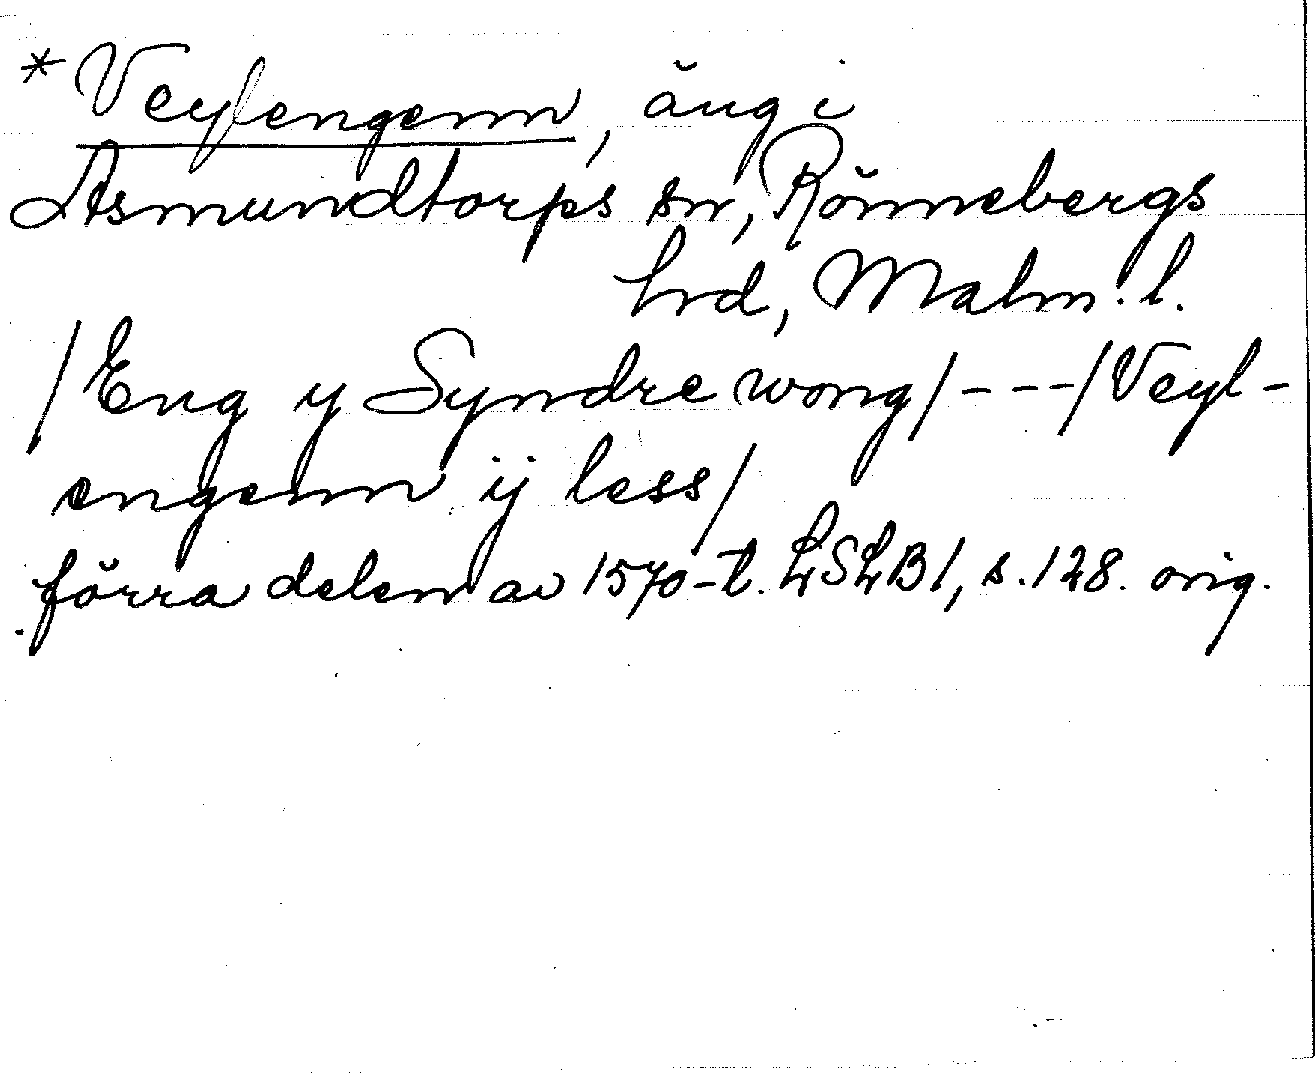 *Veylengenn, äng i
Asmundtorps sn, Rönnebergs
hrd, Malm. l.
/Eng y Syndre wong/ - - - /Veyl-
engenn ij less/
förra delen av 1570-t. LSLB1, s. 128. orig.